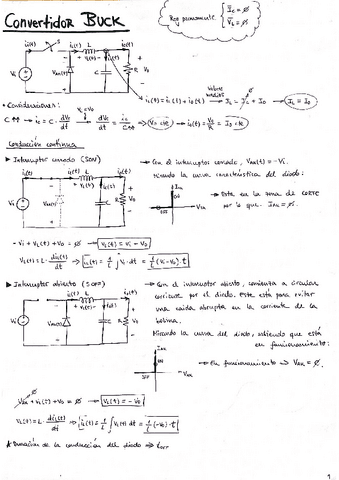 Convertidor BUCK
Reg permanente { Īc = ∅
V̄L = ∅
ii(t) S iL(t) L io(t)
Vi VAK(t) + VL(t) - C R Vo
iL(t) = ic(t) + io(t) Valores medios IL = Ic + Io → IL = Io
• Consideraciones:
C↑↑ → ic = C · dVc/dt Vc = Vo dVc/dt = ic/C↑↑ ⇒ Vo = cte → io(t) = Vo/R = Io cte
Conducción continua
▸ Interruptor cerrado (SON)
→ Con el interruptor cerrado, VAK(t) = -Vi.
Mirando la curva característica del diodo:
ii(t) iL(t) L io(t)
Vi VL(t) ic(t) C R Vo
IAK VAK OFF
→ Este en la zona de CORTE
por lo que IAK = ∅.
- Vi + VL(t) + Vo = ∅ → VL(t) = Vi - Vo
VL(t) = L · diL(t)/dt ⇒ iL(t) = 1/L ∫ VL · dt = 1/L (Vi - Vo) · t
▸ Interruptor abierto (SOFF)
→ Con el interruptor abierto, comienza a circular
corriente por el diodo. Este está para evitar
una caída abrupta en la corriente de la
bobina.
Mirando la curva del diodo, sabiendo que está
en funcionamiento:
iL(t) L io(t)
Vi VAK(t) + VL(t) - C R Vo
IAK VAK OFF
→ En funcionamiento → VAK = ∅.
VAK + VL(t) + Vo = ∅ → VL(t) = - Vo
VL(t) = L · diL(t)/dt ⇒ iL(t) = 1/L ∫ VL(t) dt = 1/L (-Vo) · t
★ Duración de la conducción del diodo ⇒ tOFF
1